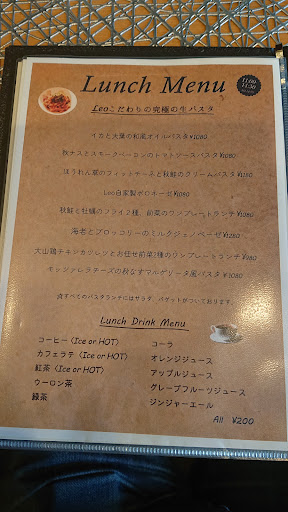 Lunch Menu
11:00
Leoこだわりの究極の生パスタ
イカと大葉の和風オイルパスタ¥1080
秋ナスとスモークベーコンのトマトソースパスタ¥1080
ほうれん草のフィットチーネと秋鮭のクリームパスタ¥1180
Leo自家製ボロネーゼ¥1080
秋鮭と牡蠣のフライ2種、前菜のワンプレートランチ¥1080
海老とブロッコリーのミルクジェノベーゼ¥1280
大山鶏チキンカツレツとお任せ前菜2種のワンプレートランチ
モッツァレラチーズの秋なすマルゲリータ風パスタ¥1080
※すべてのパスタランチにはサラダ、バゲットがついております。
Lunch Drink Menu
コーヒー (Ice or HOT)
カフェラテ (Ice or HOT)
紅茶 (Ice or HOT)
ウーロン茶
緑茶
コーラ
オレンジジュース
アップルジュース
グレープフルーツジュース
ジンジャーエール
All ¥200